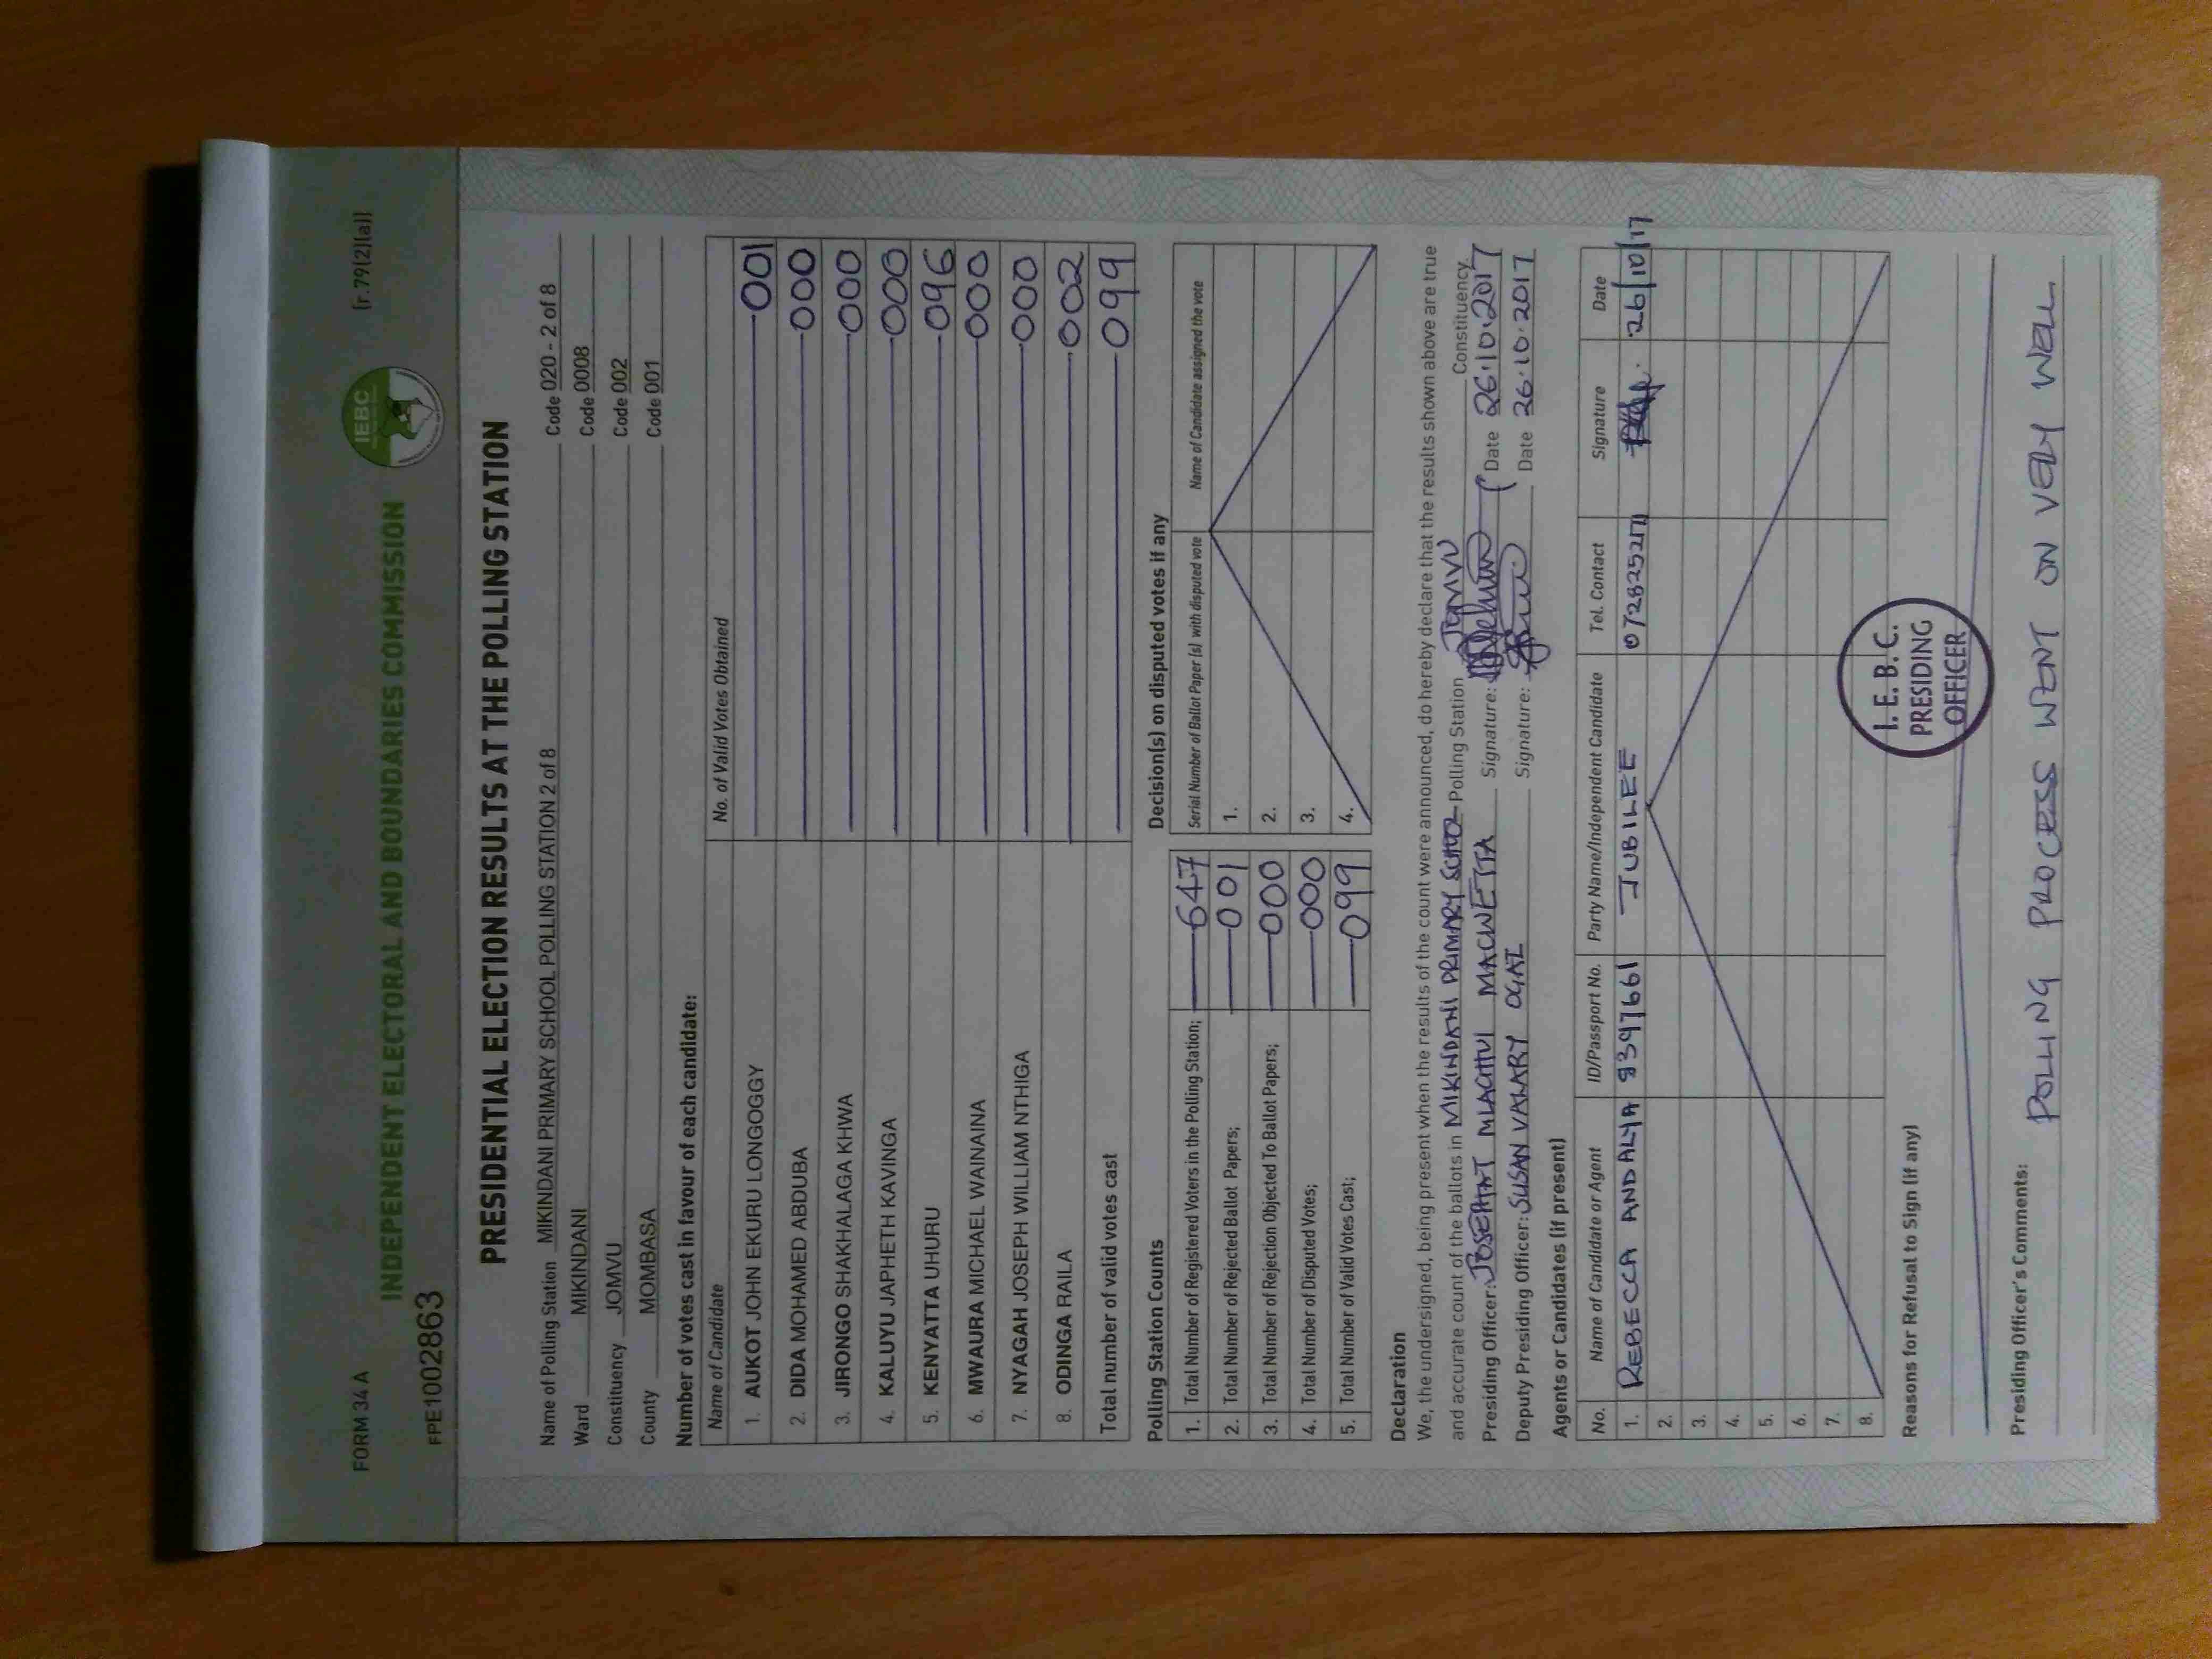 FORM 34 A
(r.79(2)(a))
IEBC
INDEPENDENT ELECTORAL AND BOUNDARIES COMMISSION
FPE1002863
PRESIDENTIAL ELECTION RESULTS AT THE POLLING STATION
Name of Polling Station MIKINDANI PRIMARY SCHOOL POLLING STATION 2 of 8 Code 020 - 2 of 8
Ward MIKINDANI Code 0008
Constituency JOMVU Code 002
County MOMBASA Code 001
Number of votes cast in favour of each candidate:
Name of Candidate No. of Valid Votes Obtained
1. AUKOT JOHN EKURU LONGOGGY 001
2. DIDA MOHAMED ABDUBA 000
3. JIRONGO SHAKHALAGA KHWA 000
4. KALUYU JAPHETH KAVINGA 000
5. KENYATTA UHURU 096
6. MWAURA MICHAEL WAINAINA 000
7. NYAGAH JOSEPH WILLIAM NTHIGA 000
8. ODINGA RAILA 002
Total number of valid votes cast 099
Polling Station Counts
1. Total Number of Registered Voters in the Polling Station; 647
2. Total Number of Rejected Ballot Papers; 001
3. Total Number of Rejection Objected To Ballot Papers; 000
4. Total Number of Disputed Votes; 000
5. Total Number of Valid Votes Cast; 099
Decision(s) on disputed votes if any
Serial Number of Ballot Paper (s) with disputed vote Name of Candidate assigned the vote
1.
2.
3.
4.
Declaration
We, the undersigned, being present when the results of the count were announced, do hereby declare that the results shown above are true
and accurate count of the ballots in MIKINDANI PRIMARY SCHOOL Polling Station JOMVU Constituency
Presiding Officer: JOSEPHAT Signature: Date 26.10.2017
Deputy Presiding Officer: SUSAN Signature: Date 26.10.2017
Agents or Candidates (if present)
No. Name of Candidate or Agent ID/Passport No. Party Name/Independent Candidate Tel. Contact Signature Date
1. REBECCA ANDALYA JUBILEE 26/10/17
2.
3.
4.
5.
6.
7.
8.
I.E.B.C.
PRESIDING
OFFICER
Reasons for Refusal to Sign (if any)
Presiding Officer's Comments:
POLLING PROCESS WENT ON VERY WELL